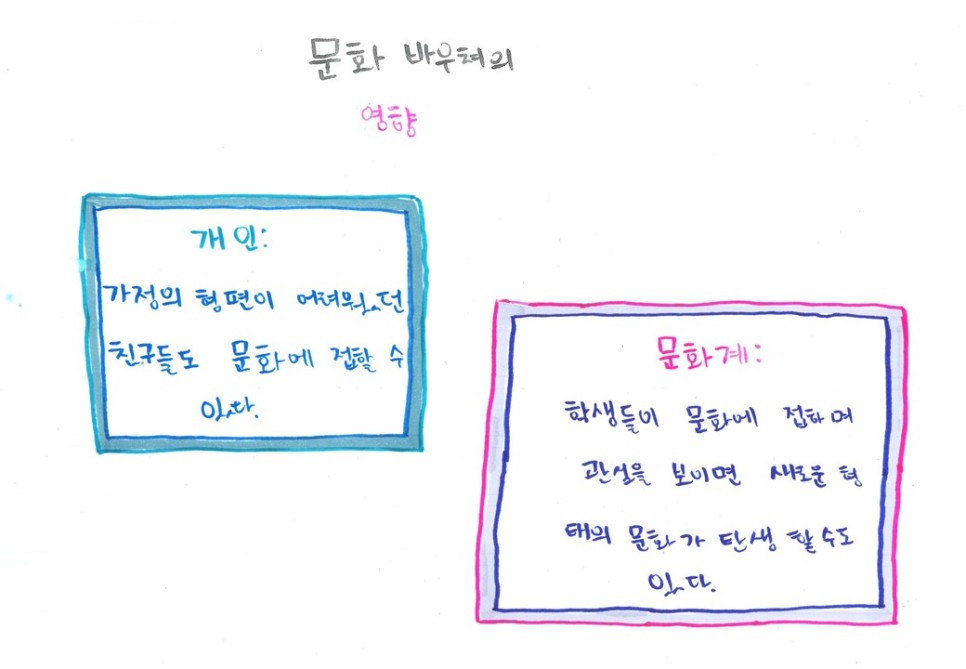 문화 바우처의
영향
개인:
가정의 형편이 어려웠던
친구들도 문화에 접할 수
있다.
문화계:
학생들이 문화에 접하며
관심을 보이면 새로운 형
태의 문화가 탄생 할 수도
있다.